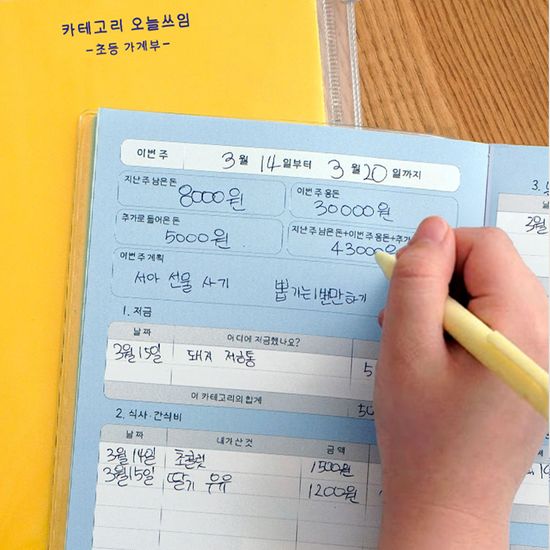 카테고리 오늘쓰임
-초등 가계부-
이번 주 3월 14일부터 3월 20일까지
지난 주 남은 돈 이번 주 용돈
8000원 30000원
추가로 들어온 돈 지난 주 남은 돈+이번 주 용돈+추가
5000원 43000
이번 주 계획
서아 선물 사기 뽑기는 1번만 하기
1. 저금
날짜 어디에 저금했나요?
3월 15일 돼지 저금통 5
이 카테고리의 합계 50
2. 식사·간식비
날짜 내가 산 것 금액
3월 14일 초콜릿 1500원
3월 15일 딸기 우유 1200원
3.
3월